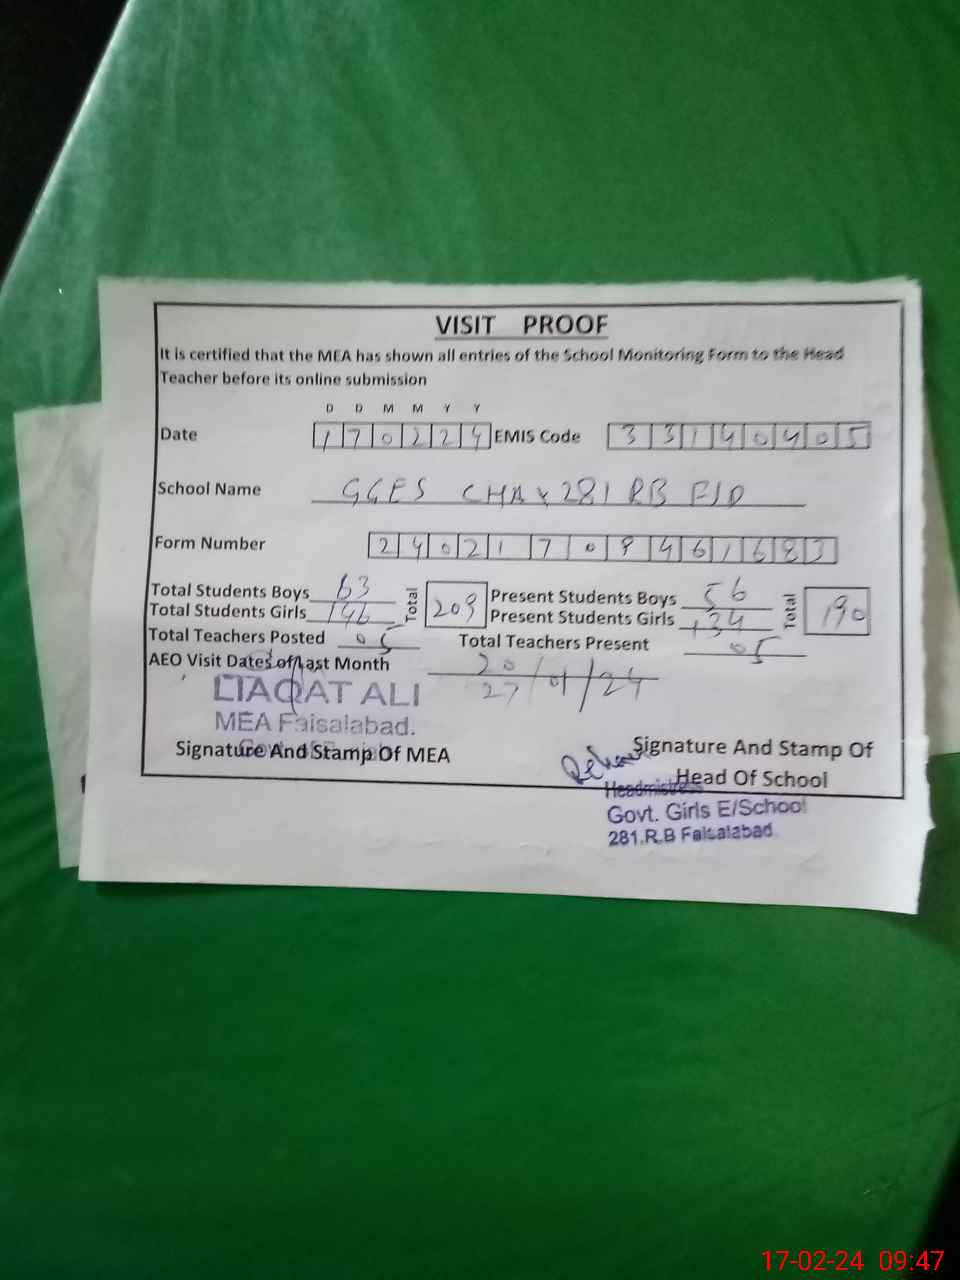 VISIT PROOF
It is certified that the MEA has shown all entries of the School Monitoring Form to the Head
Teacher before its online submission
D D M M Y Y
Date 170224 EMIS Code 33140405
School Name GGES CHAK 281 RB FSD
Form Number
Total Students Boys 63 Total 209 Present Students Boys 56 Total 190
Total Students Girls 146 Present Students Girls 134
Total Teachers Posted 05 Total Teachers Present 05
AEO Visit Dates of Last Month 20/27/01/24
LIAQAT ALI
MEA Faisalabad.
Signature And Stamp Of MEA Signature And Stamp Of
Head Of School
Headmistress
Govt. Girls E/School
281.R.B Faisalabad.
17-02-24 09:47